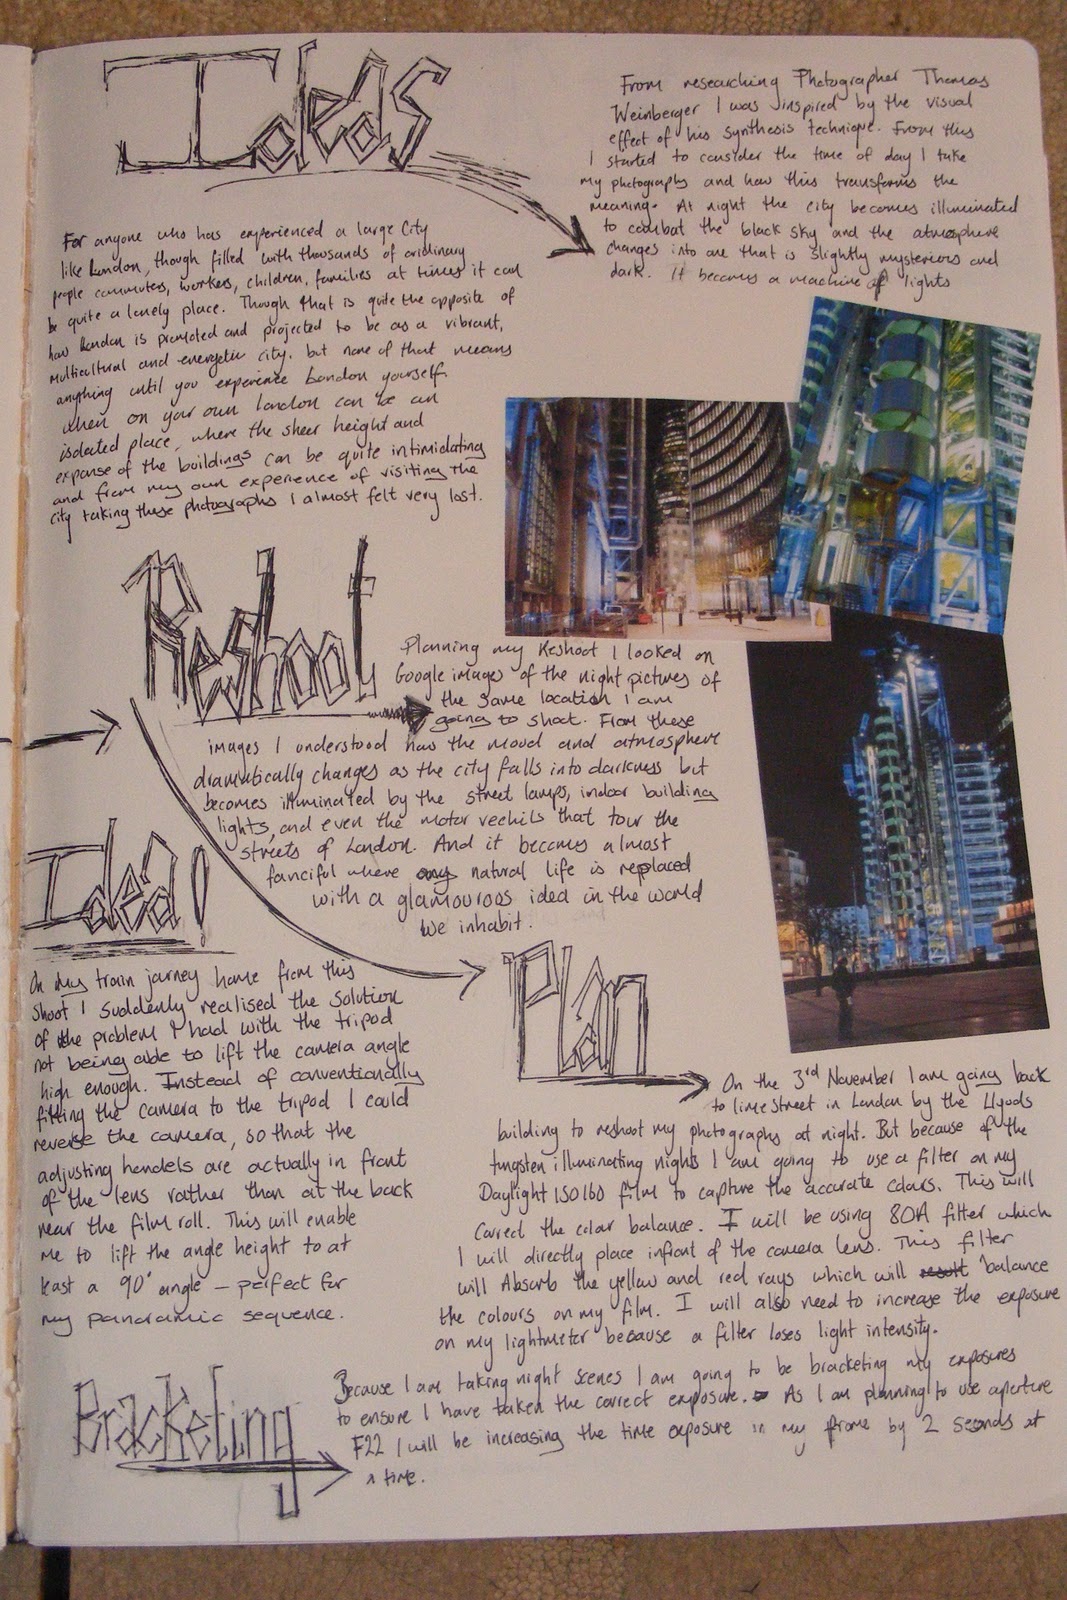 Ideas
From researching Photographer Thomas
Weinberger I was inspired by the visual
effect of his synthesis technique. From this
I started to consider the time of day I take
my photographs and how this transforms the
meaning. At night the city becomes illuminated
to combat the black sky and the atmosphere
changes into one that is slightly mysterious and
dark. It becomes a machine of lights
For anyone who has experienced a large City
like London, though filled with thousands of oridinary
people commuters, workers, children, families at times it can
be quite a lonely place. Though that is quite the opposite of
how London is promoted and projected to be as a vibrant,
multicultural and energetic city. but none of that means
anything until you experience London yourself.
When on your own london can be an
isolated place, where the sheer height and
expanse of the buildings can be quite intimidating
and from my own experience of visiting the
city taking these photographs I almost felt very lost.
Reshoot
Planning my Reshoot I looked on
Google images of the night pictures of
the same location I am
going to shoot. From these
images I understood how the mood and atmosphere
dramatically changes as the city falls into darkness but
becomes illuminated by the street lamps, indoor building
lights, and even the motor vechils that tour the
streets of London. And it becomes almost
fanciful where any natural life is replaced
with a glamourous idea in the world
we inhabit.
Idea!
On my train journey home from this
shoot I suddenly realised the solution
of the problem I had with the tripod
not being able to lift the camera angle
high enough. Instead of conventionally
fitting the camera to the tripod I could
reverse the camera, so that the
adjusting handels are actually in front
of the lens rather than at the back
near the film roll. This will enable
me to lift the angle height to at
least a 90° angle – perfect for
my panoramic sequence.
Plan
On the 3rd November I am going back
to lime street in London by the Llyods
building to reshoot my photographs at night. But because of the
tungsten illuminating nights I am going to use a filter on my
Daylight ISO 160 film to capture the accurate colours. This will
correct the color balance. I will be using 80A filter which
I will directly place infront of the camera lens. This filter
will Absorb the yellow and red rays which will result balance
the colours on my film. I will also need to increase the exposure
on my lightmeter because a filter loses light intensity.
Bracketing
Because I am taking night scenes I am going to be bracketing my exposures
to ensure I have taken the correct exposure. As I am planning to use aperture
F22 I will be increasing the time exposure in my frame by 2 seconds at
a time.